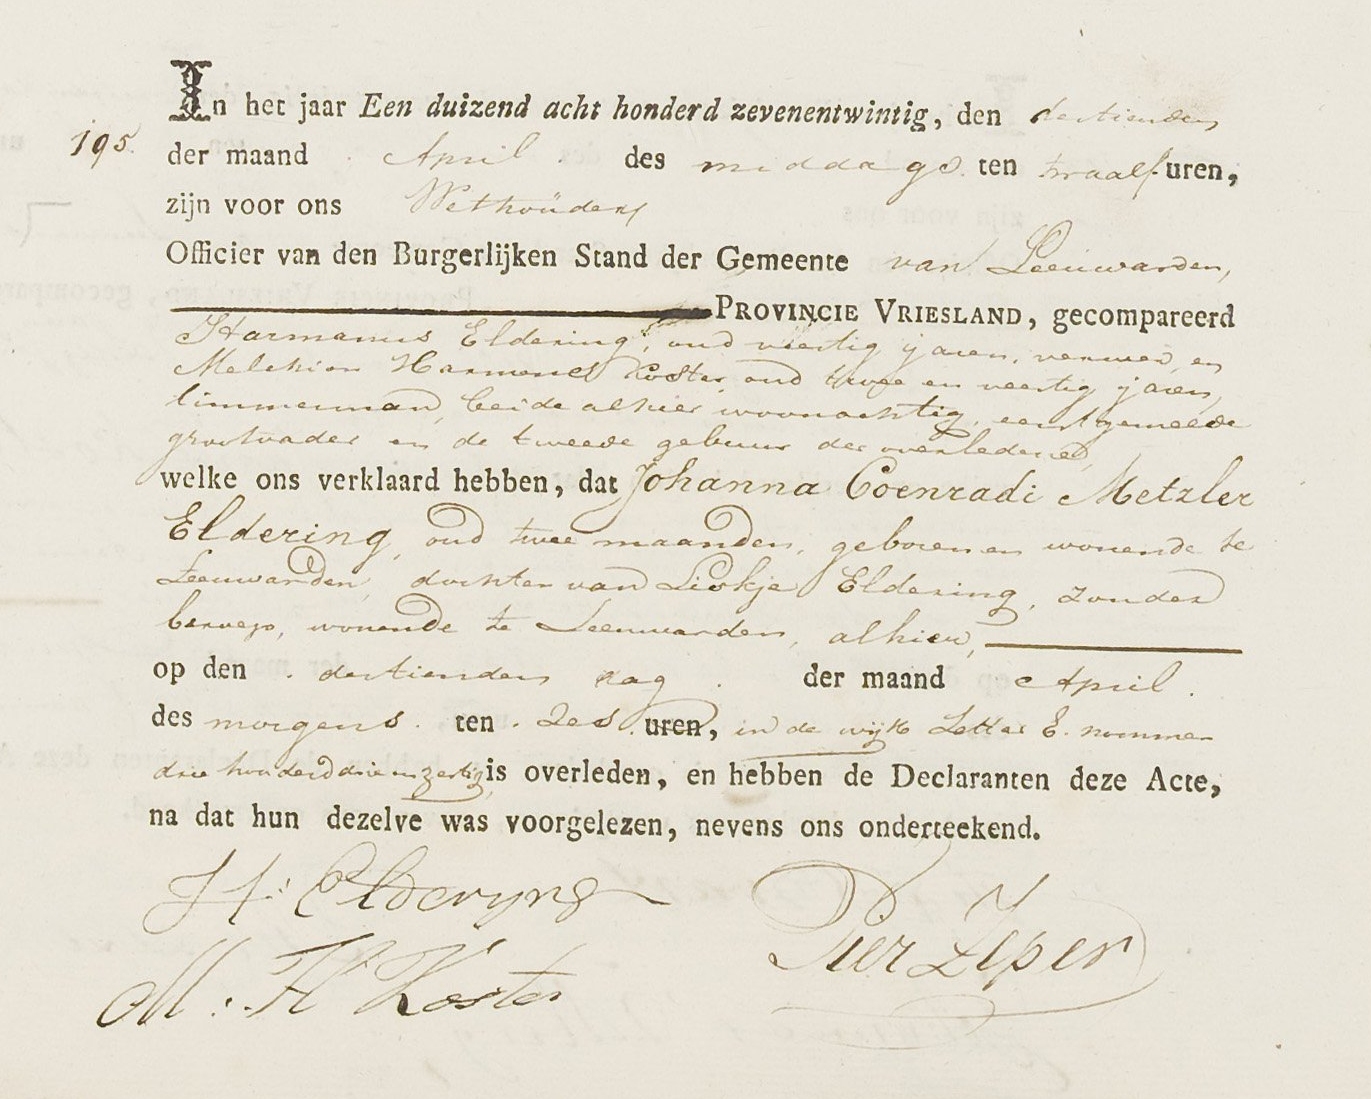 In het jaar Een duizend acht honderd zevenentwintig, den dertienden
195.
der maand April des middags ten twaalf uren,
zijn voor ons Wethouder
Officier van den Burgerlijken Stand der Gemeente van Leeuwarden,
PROVINCIE VRIESLAND, gecompareerd
Harmanus Eldering, oud veertig jaren, verwer, en
Melchior Harmens Koster, oud twee en veertig jaren,
timmerman, beide alhier woonachtig, eerstgemelde
grootvader en de tweede gebuur der overledene,
welke ons verklaard hebben, dat Johanna Coenradi Metzler
Eldering, oud twee maanden, geboren en wonende te
Leeuwarden, dochter van Liokje Eldering, zonder
beroep, wonende te Leeuwarden, alhier,
op den dertienden dag der maand April.
des morgens ten zes uren, in de wijk Letter E. nommer
drie honderd drie en zestig, is overleden, en hebben de Declaranten deze Acte,
na dat hun dezelve was voorgelezen, nevens ons onderteekend.
H: Elderyng
Pier Zeper
M: H Koster